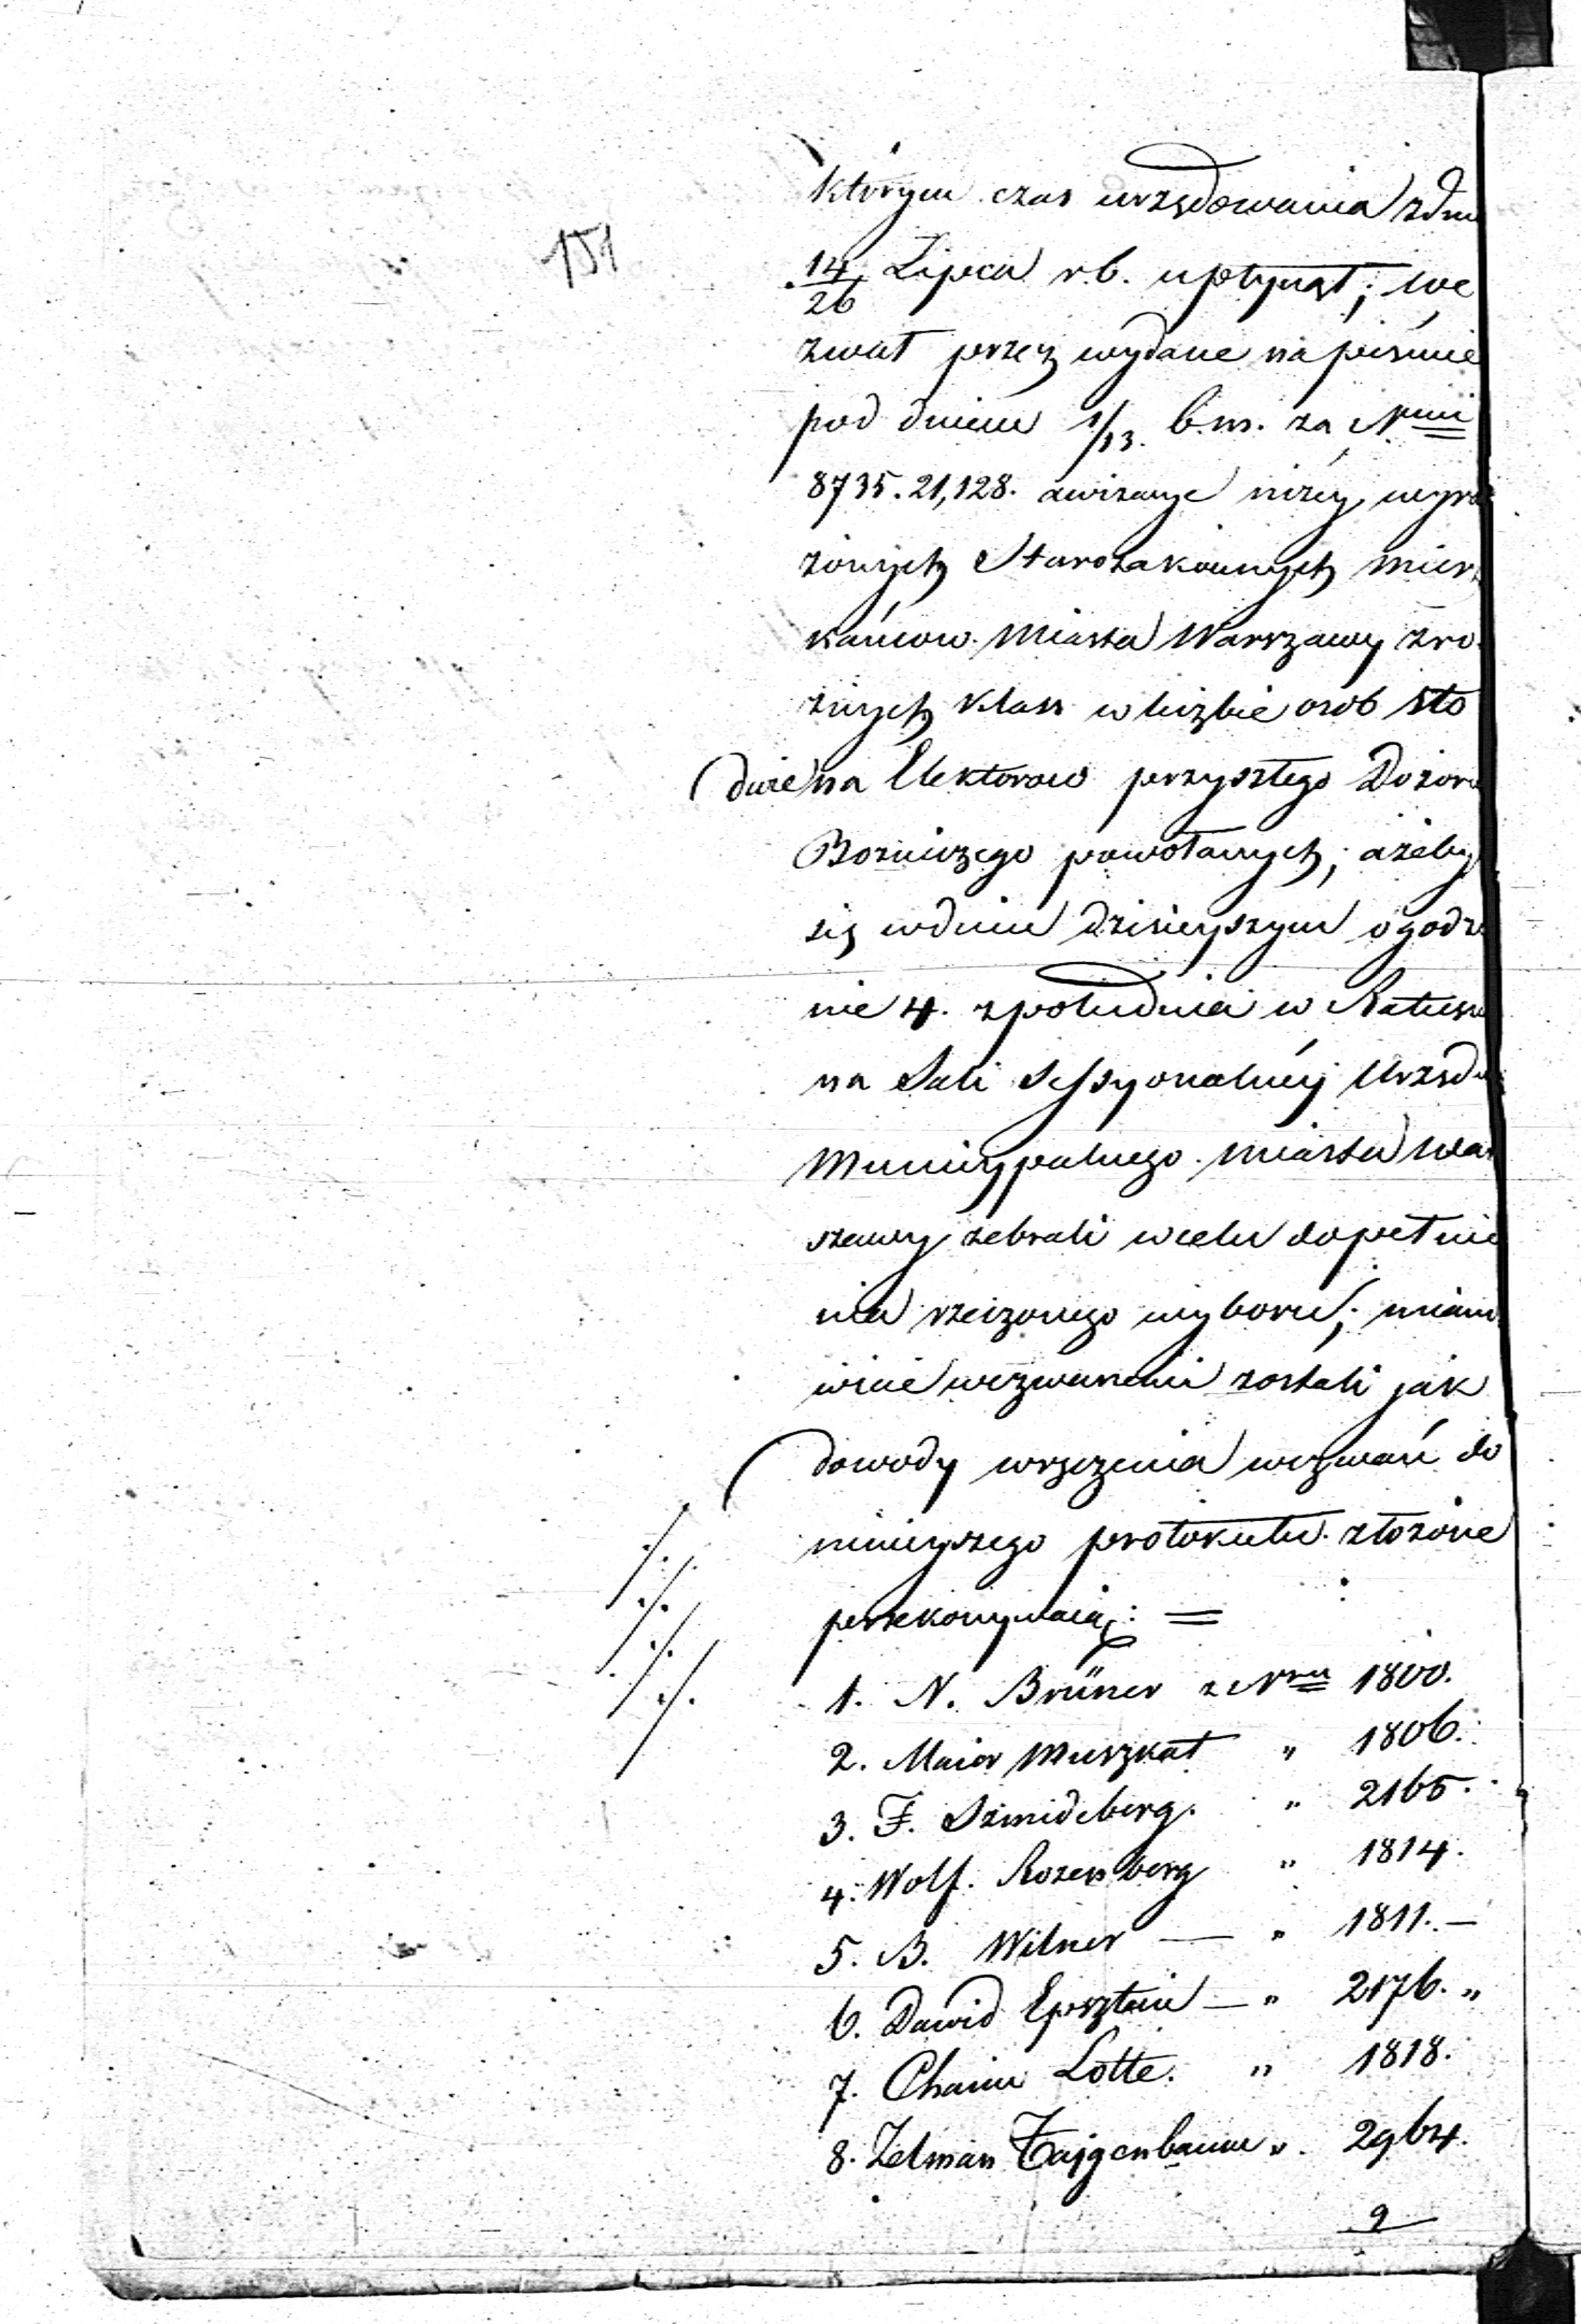 151
którym czas urzędowania z dn
14/26 Lipca r.b. upłynął; we
zwał przez wydane na piśmie
pod dniem 1/13. b.m. za Nrmi
8735. 21,128. awizacye niżéy wyra
żonych Starozakonnych miesz
kańcow Miasta Warszawy z ro
żnych Klass w liczbie osob sto
na Elektorow przyszłego Dozoru
Bożniczego powołanych; ażeby
się w dniu dzisieyszym o godzi
nie 4. z południa w Ratuszu
na Sali Sessyonalnéj Urzędu
Municypalnego Miasta War
szawy zebrali w celu dopełnie
nia rzeczonego wyboru; miano
wicie wezwanemi zostali jak
dowody wręczenia wezwań do
ninieyszego protokułu złożone
przekonywaią: =
1. N. Brüner z Nru 1800.
2. Maior Muszkat " 1806.
3. F. Szmideberg. " 2165.
4. Wolf. Rozenberg " 1814.
5. B. Wilner — " 1811. —
6. Dawid Epsztein — " 2176. "
7. Chaim Lotte. " 1818.
8. Zelman Fajgenbaum " 2964.
9